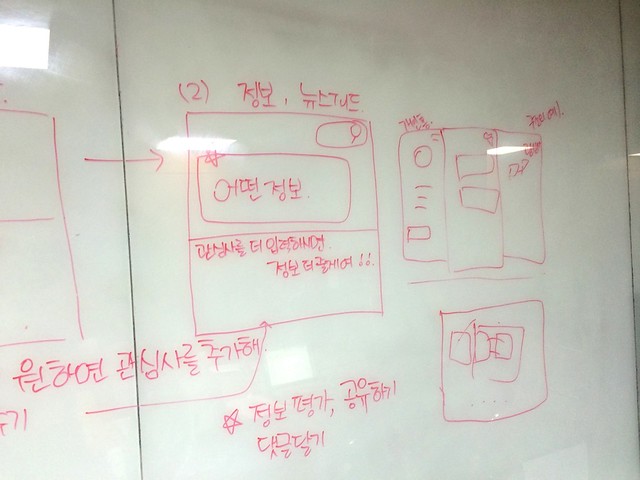 (2) 정보, 뉴스피드
어떤 정보
관심사를 더 입력하시면
정보 더 줄게여!!
원하면 관심사를 추가해
☆ 정보 평가, 공유하기
댓글달기